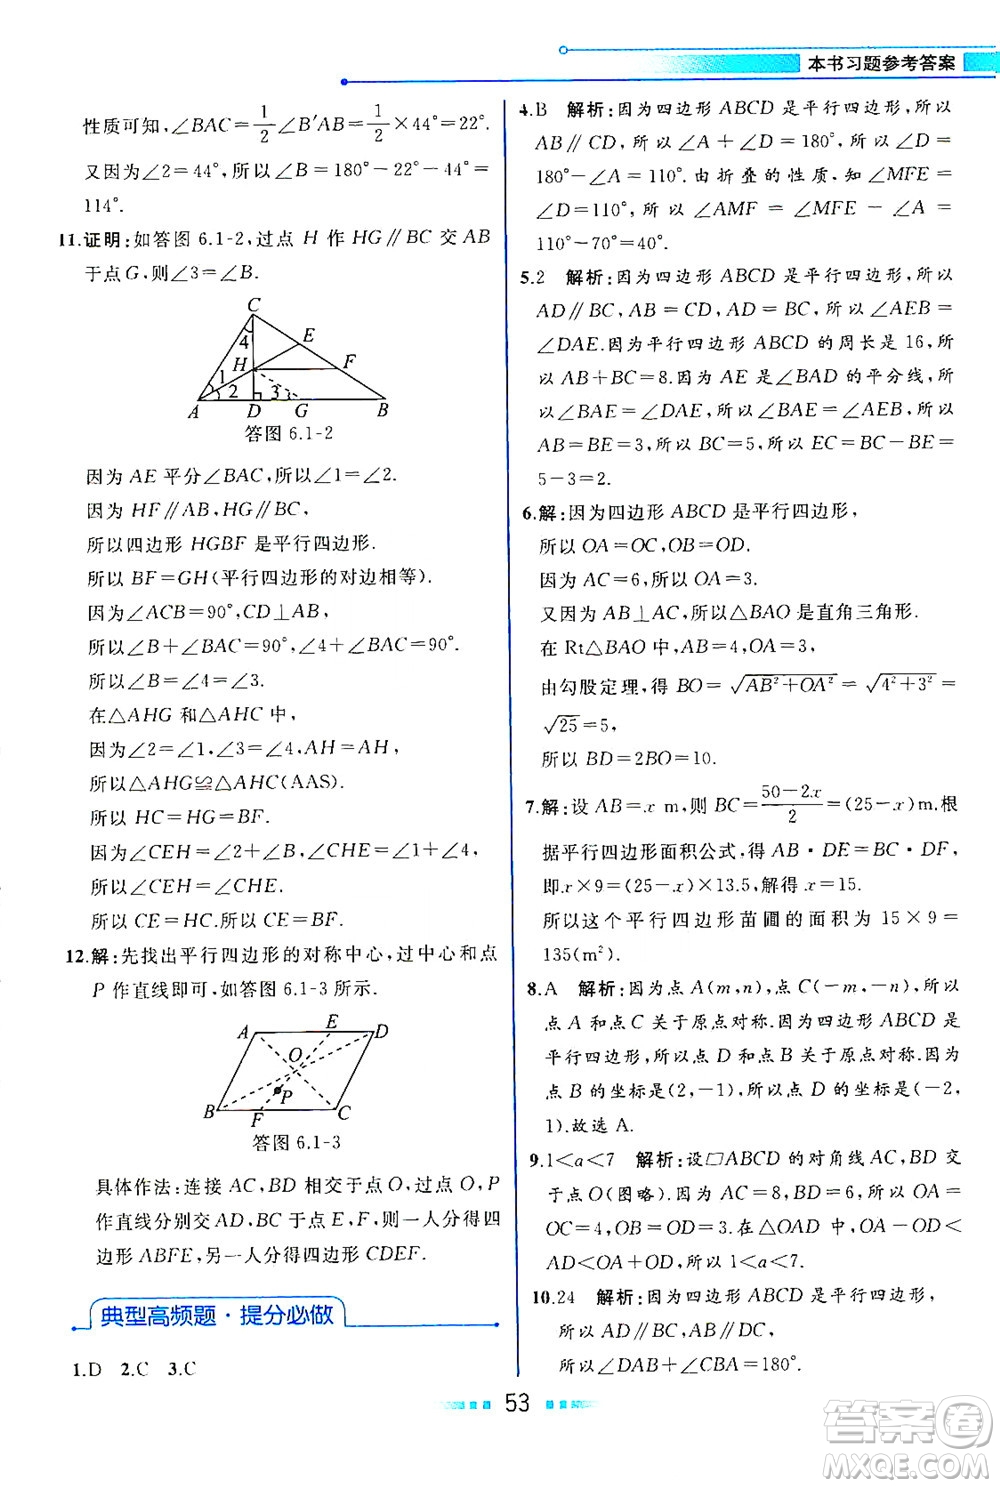 本书习题参考答案
性质可知,∠BAC=1/2∠B′AB=1/2×44°=22°.
又因为∠2=44°,所以∠B=180°-22°-44°=
114°.
11.证明:如答图 6.1-2,过点 H 作 HG∥BC 交 AB
于点G,则∠3=∠B.
C
4
E
H
F
1
2
3
A
D
G
B
答图 6.1-2
因为 AE 平分∠BAC,所以∠1=∠2.
因为 HF∥AB,HG∥BC,
所以四边形 HGBF 是平行四边形.
所以 BF=GH(平行四边形的对边相等).
因为∠ACB=90°,CD⊥AB,
所以∠B+∠BAC=90°,∠4+∠BAC=90°.
所以∠B=∠4=∠3.
在△AHG 和△AHC 中,
因为∠2=∠1,∠3=∠4,AH=AH,
所以△AHG≌△AHC(AAS).
所以 HC=HG=BF.
因为∠CEH=∠2+∠B,∠CHE=∠1+∠4,
所以∠CEH=∠CHE.
所以 CE=HC.所以 CE=BF.
12.解:先找出平行四边形的对称中心,过中心和点
P 作直线即可,如答图 6.1-3 所示.
A
E
D
O
P
B
F
C
答图 6.1-3
具体作法:连接 AC,BD 交于点 O,过点 O,P
作直线分别交 AD,BC 于点 E,F,则一人分得四
边形 ABFE,另一人分得四边形 CDEF.
典型高频题·提分必做
1.D 2.C 3.C
4.B 解析:因为四边形 ABCD 是平行四边形,所以
AB∥CD,所以∠A+∠D=180°,所以∠D=
180°-∠A=110°.由折叠的性质,知∠MFE=
∠D=110°,所以∠AMF=∠MFE-∠A=
110°-70°=40°.
5.2 解析:因为四边形 ABCD 是平行四边形,所以
AD∥BC,AB=CD,AD=BC,所以∠AEB=
∠DAE.因为平行四边形 ABCD 的周长是 16,所
以 AB+BC=8.因为 AE 是∠BAD 的平分线,所
以∠BAE=∠DAE,所以∠BAE=∠AEB,所以
AB=BE=3,所以 BC=5,所以 EC=BC-BE=
5-3=2.
6.解:因为四边形 ABCD 是平行四边形,
所以 OA=OC,OB=OD.
因为 AC=6,所以 OA=3.
又因为 AB⊥AC,所以△BAO 是直角三角形.
在 Rt△BAO 中,AB=4,OA=3,
由勾股定理,得 BO=√(AB²+OA²)=√(4²+3²)=
√25=5,
所以 BD=2BO=10.
7.解:设 AB=x m,则 BC=(50-2x)/2=(25-x)m.根
据平行四边形面积公式,得 AB·DE=BC·DF,
即 x×9=(25-x)×13.5,解得 x=15.
所以这个平行四边形苗圃的面积为 15×9=
135(m²).
8.A 解析:因为点 A(m,n),点 C(-m,-n),所以
点 A 和点 C 关于原点对称.因为四边形 ABCD 是
平行四边形,所以点 D 和点 B 关于原点对称.因为
点 B 的坐标是(2,-1),所以点 D 的坐标是(-2,
1).故选 A.
9.1<a<7 解析:设▱ABCD 的对角线 AC,BD 交
于点 O(图略).因为 AC=8,BD=6,所以 OA=
OC=4,OD=OB=3.在△OAD 中,OA-OD<
AD<OA+OD,所以 1<a<7.
10.24 解析:因为四边形 ABCD 是平行四边形,
所以 AD∥BC,AB∥CD,
所以∠DAB+∠CBA=180°.
53
答案卷
MXQE.COM